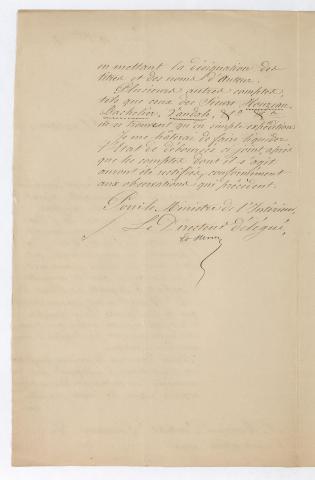 en mettant la désignation des
titres et des noms d'Auteur.
Plusieurs autres comptes,
tels que ceux des Sieurs Houzeau,
Bachelier, Vandale, &a &a
ne se trouvent qu'en simple expédition
Je me hâterai de faire liquider
l'Etat de débourses ci joint, après
que les comptes dont il s'agit
auront été rectifiés, conformément
aux observations qui précèdent.
Pour le Ministre de l'Intérieur,
Le Directeur délégué,